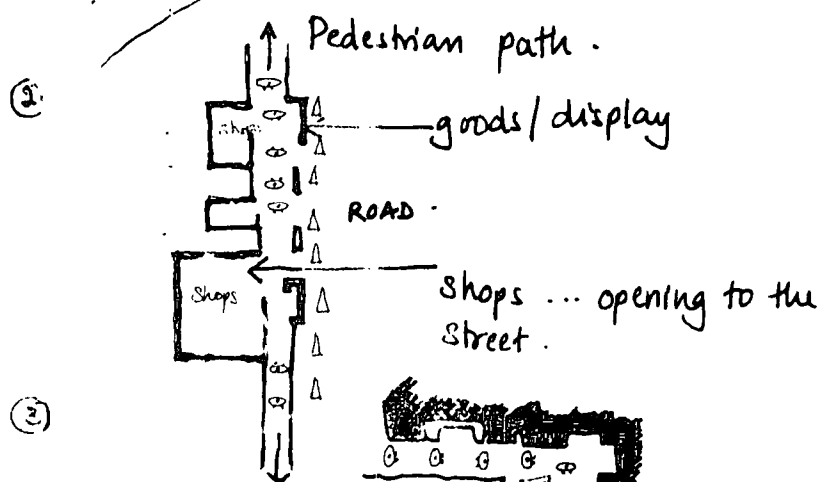 Pedestrian path.
②.
Shops
goods/display
ROAD.
Shops
Shops ... opening to the
Street.